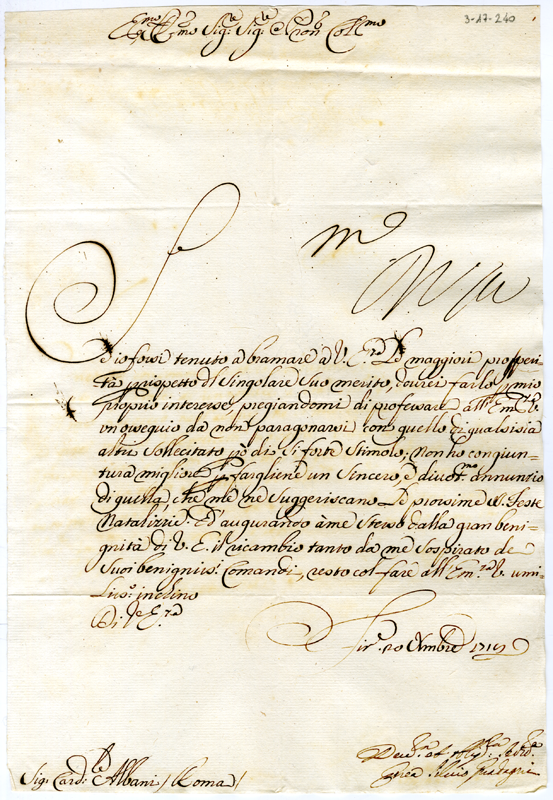 3-17-240
Em.mo e R.mo Sig.re Sig.re P.ron Col.mo
Se
d io fossi tenuto à bramare à V. Em.za le maggiori prosperi
tà rispetto al Singolare Suo merito, dovrei farlo mio
proprio interesse, pregiandomi di professare all' Em.za V.
un ossequio da non paragonarsi con quello di qualsisia
altro Sollecitato di Si forte Stimolo; Non ho congiun-
tura migliore p. fargliene un Sincero, è divot.mo annuntio
di quella che me ne Suggeriscano le prossime S. Feste
Natalizie: Ed augurando à me stesso dalla gran beni-
gnità di V. E. il ricambio tanto da me Sospirato de
Suoi benigniss.i Comandi, resto col fare all' Em.za V. umi-
liss.o inchino
Di V.e E.za
Fir.e 20 Xmbre
Sig. Card.le Albani / Roma /